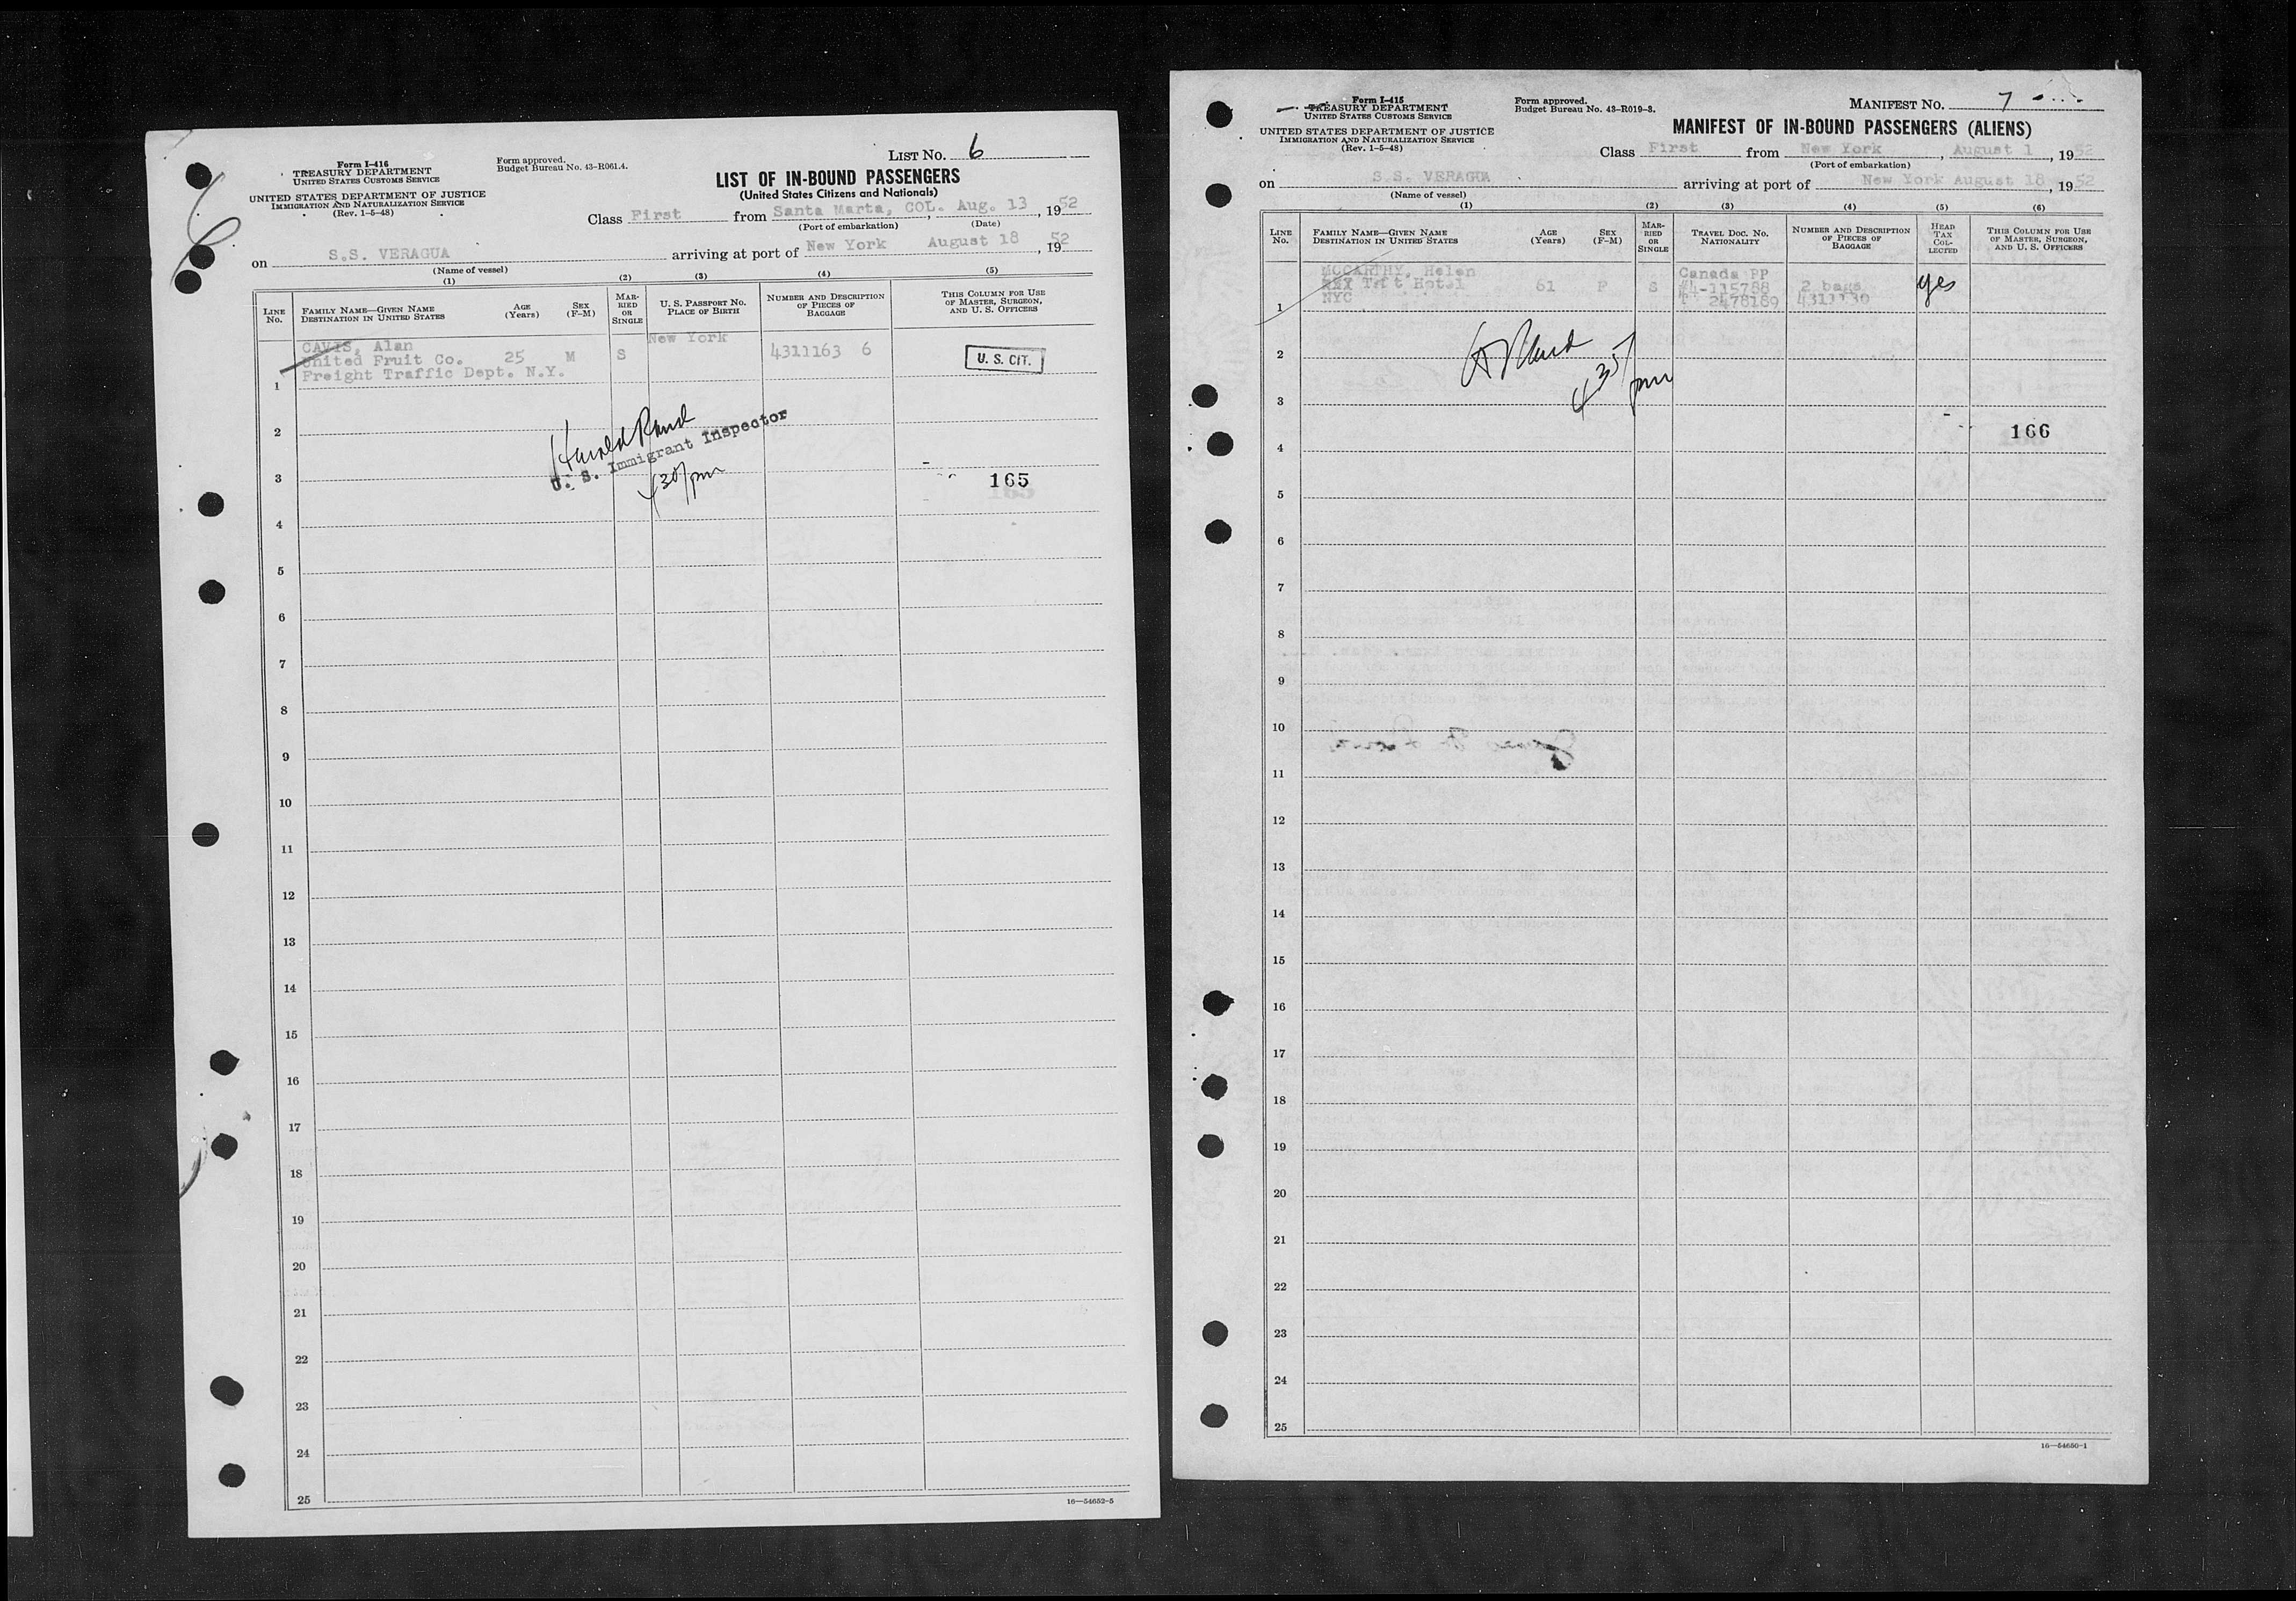 Form I-416
TREASURY DEPARTMENT
UNITED STATES CUSTOMS SERVICE
UNITED STATES DEPARTMENT OF JUSTICE
IMMIGRATION AND NATURALIZATION SERVICE
(Rev. 1-5-48)
Form approved.
Budget Bureau No. 43-R061.4.
LIST NO. 6
LIST OF IN-BOUND PASSENGERS
(United States Citizens and Nationals)
Class First from Santa Marta, COL. Aug. 13, 1952
(Port of embarkation) (Date)
on S.S. VERAGUA arriving at port of New York August 18, 1952
(Name of vessel)
(1) (2) (3) (4) (5)
LINE NO. FAMILY NAME—GIVEN NAME DESTINATION IN UNITED STATES AGE (Years) SEX (F-M) MARRIED OR SINGLE U. S. PASSPORT NO. PLACE OF BIRTH NUMBER AND DESCRIPTION OF PIECES OF BAGGAGE THIS COLUMN FOR USE OF MASTER, SURGEON, AND U. S. OFFICERS
New York
CAVIS, Alan
United Fruit Co. 25 M S 4311163 6 U. S. CIT.
Freight Traffic Dept. N.Y.
1
2
Harold Rand
U. S. Immigrant Inspector
430 pm
3 165
4
5
6
7
8
9
10
11
12
13
14
15
16
17
18
19
20
21
22
23
24
25
16—54652-5
Form I-415
TREASURY DEPARTMENT
UNITED STATES CUSTOMS SERVICE
UNITED STATES DEPARTMENT OF JUSTICE
IMMIGRATION AND NATURALIZATION SERVICE
(Rev. 1-5-48)
Form approved.
Budget Bureau No. 43-R019-3.
MANIFEST NO. 7
MANIFEST OF IN-BOUND PASSENGERS (ALIENS)
Class First from New York, August 1, 1952
(Port of embarkation)
on S.S. VERAGUA arriving at port of New York August 18, 1952
(Name of vessel)
(1) (2) (3) (4) (5) (6)
LINE NO. FAMILY NAME—GIVEN NAME DESTINATION IN UNITED STATES AGE (Years) SEX (F-M) MARRIED OR SINGLE TRAVEL DOC. NO. NATIONALITY NUMBER AND DESCRIPTION OF PIECES OF BAGGAGE HEAD TAX COLLECTED THIS COLUMN FOR USE OF MASTER, SURGEON, AND U. S. OFFICERS
MCCARTHY, Helen Canada PP
Taft Hotel 61 F S #4-115788 2 bags yes
NYC 2478189 4311130
1
2 H Rand
435 pm
3
4 166
5
6
7
8
9
10
11
12
13
14
15
16
17
18
19
20
21
22
23
24
25
16—54650-1